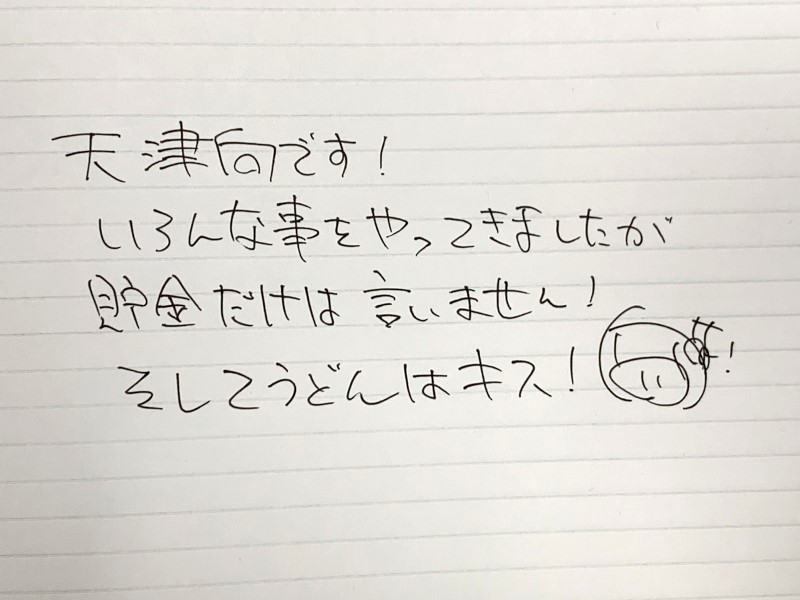 天津向です！
いろんな事をやってきましたが
貯金だけは言いません！
そしてうどんはキス！！